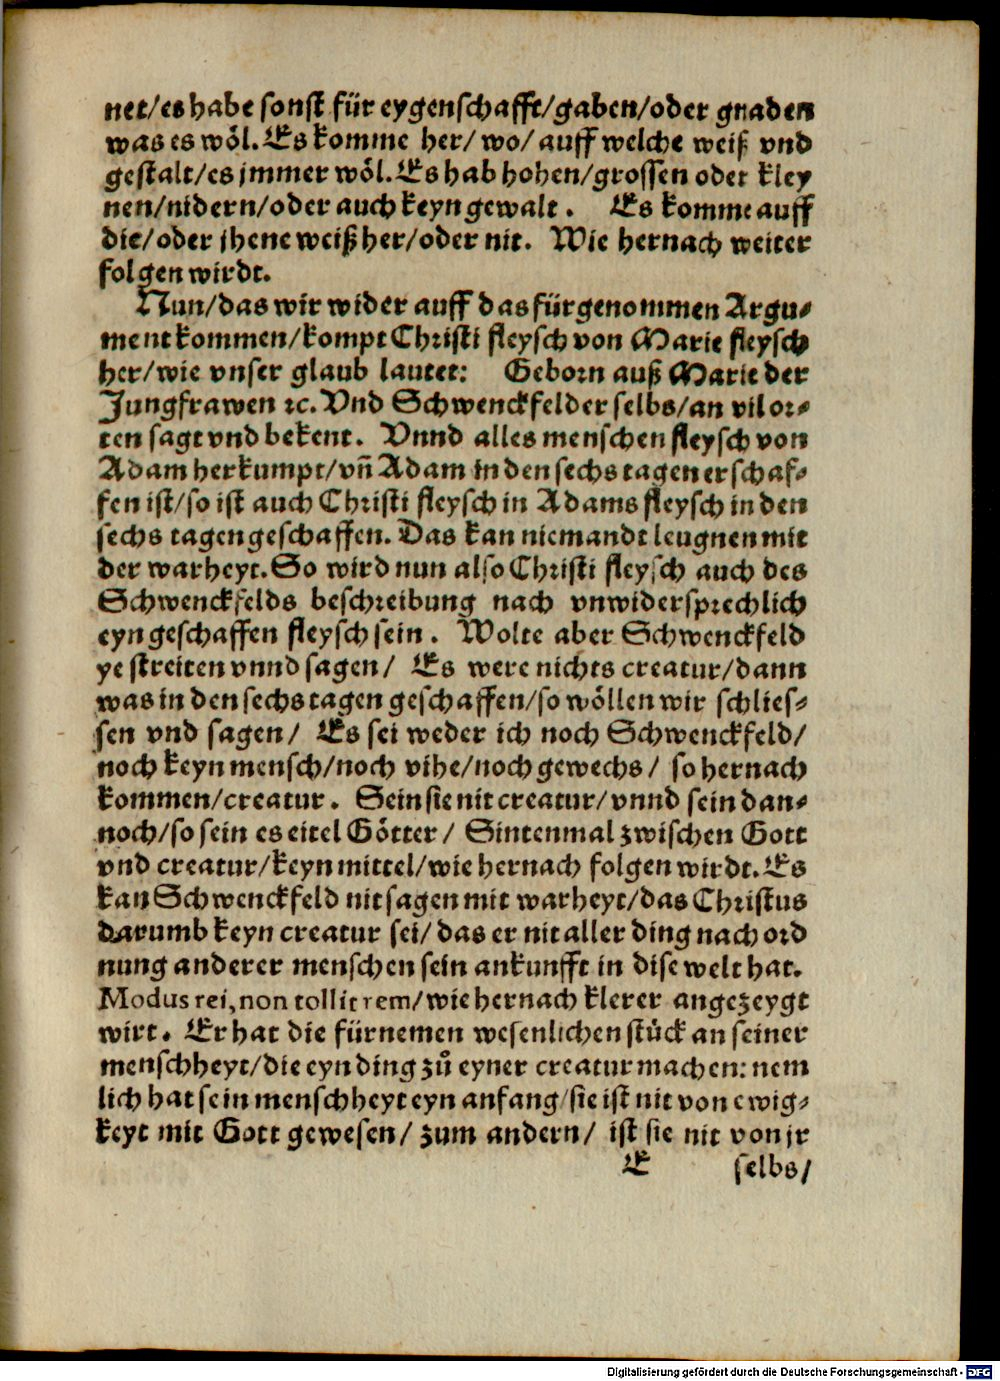 net/es habe sonst für eygenschafft/gaben/oder gnaden
was es wöl. Es komme her/ wo/ auff welche weiß vnd
gestalt/es jmmer wöl. Es hab hohen/grossen oder kley
nen/nidern/oder auch keyn gewalt. Es komme auff
die/oder jhene weiß her/oder nit. Wie hernach weiter
folgen wirdt.
Nun/das wir wider auff das fürgenommen Argu⸗
ment kommen/kompt Christi fleysch von Marie fleysch
her/wie vnser glaub lautet: Geborn auß Marie der
Jungfrawen ꝛc. Vnd Schwenckfelder selbs/an vil or⸗
ten sagt vnd bekent. Vnnd alles menschen fleysch von
Adam herkumpt/vñ Adam in den sechs tagen erschaf⸗
fen ist/so ist auch Christi fleysch in Adams fleysch in den
sechs tagen geschaffen. Das kan niemandt leugnen mit
der warheyt. So wird nun also Christi fleysch auch des
Schwenckfelds beschreibung nach vnwidersprechlich
eyn geschaffen fleysch sein. Wolte aber Schwenckfeld
ye streiten vnnd sagen/ Es were nichts creatur/dann
was in den sechs tagen geschaffen/so wöllen wir schlies⸗
sen vnd sagen/ Es sei weder ich noch Schwenckfeld/
noch keyn mensch/noch vihe/noch gewechs/ so hernach
kommen/creatur. Sein sie nit creatur/vnnd sein dan⸗
noch/so sein es eitel Götter/ Sintenmal zwischen Gott
vnd creatur/keyn mittel/wie hernach folgen wirdt. Es
kan Schwenckfeld nit sagen mit warheyt/das Christus
darumb keyn creatur sei/das er nit aller ding nach ord
nung anderer menschen sein ankunfft in dise welt hat.
Modus rei, non tollit rem/wie hernach klerer angezeygt
wirt. Er hat die fürnemen wesenlichen stück an seiner
menschheyt/die eyn ding zů eyner creatur machen: nem
lich hat sein menschheyt eyn anfang/sie ist nit von ewig⸗
keyt mit Gott gewesen/ zum andern/ ist sie nit von jr
E selbs/
Digitalisierung gefördert durch die Deutsche Forschungsgemeinschaft - DFG